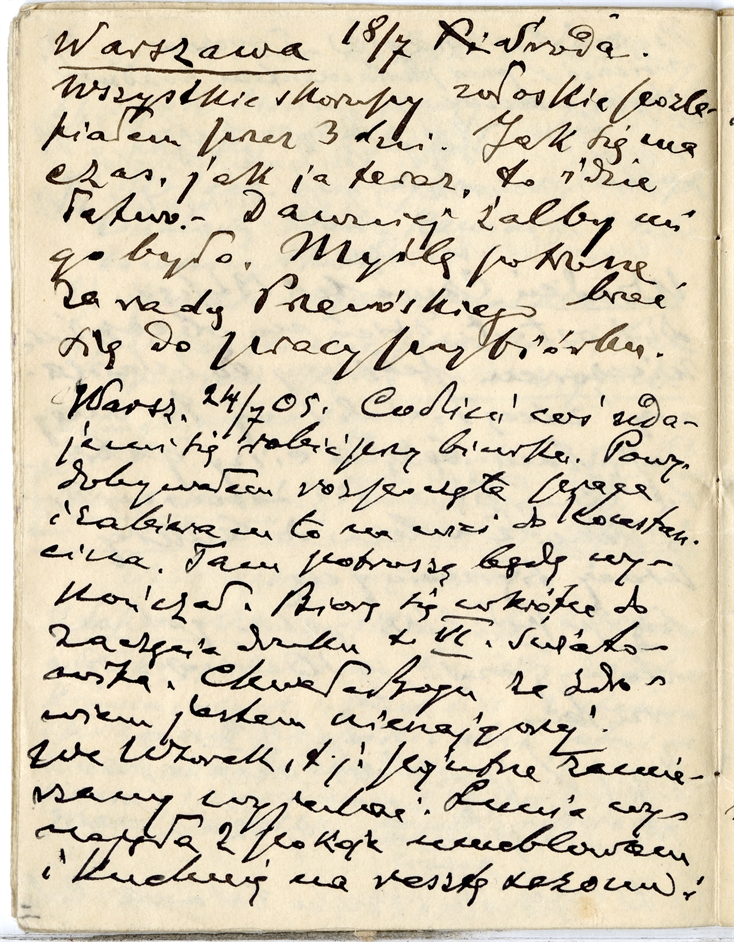 Warszawa 18/7 Środa.
Wszystkie skorupy zołoskie pozle-
piałem przez 3 dni. Jak się ma
czas, jak ja teraz, to idzie
łatwo.- Dawniej żalby mi
go było. Myślę potroszę
za radą Przewóskiego brać
się do pracy przy biórku.
Warsz. 24/7 05. Codzień coś uda-
je mi się robić przy biurku. Powy-
dobywałem rozpoczęte prace
i zabieram to na wieś do Konstan-
cina. Tam potroszę będę wy-
kończał. Biorę się wkrótce do
zaczęcia druku t VI. Świato-
wita. Chwała Bogu ze zdro-
wiem jestem nienajgorzej.
We Wtorek, t.j. pojutrze zamie-
rzamy wyjechać. Lunia wy-
najęła 2 pokoje umeblowane
i kuchnię na resztę sezonu i